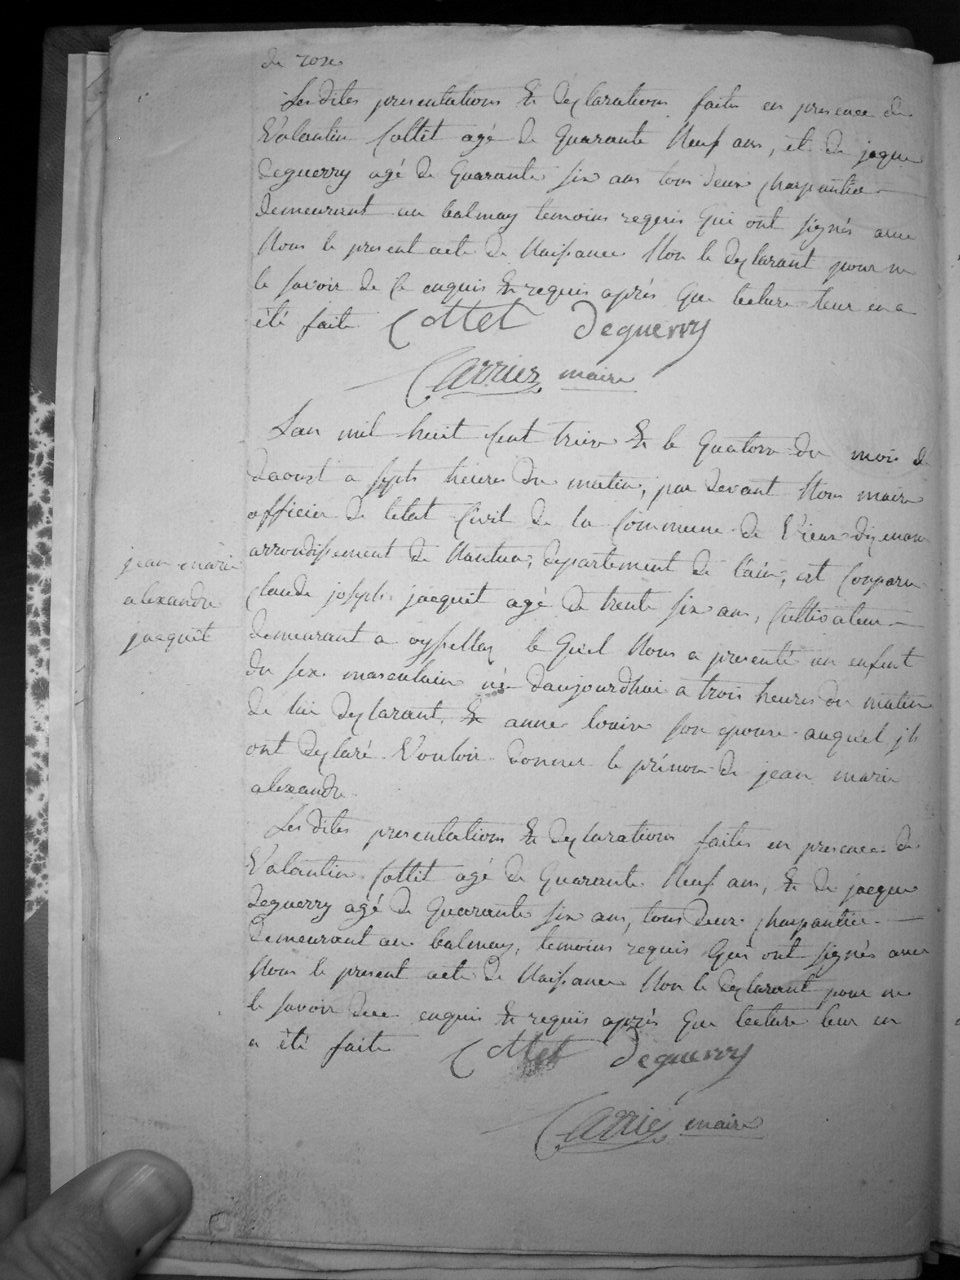 de rose
Les dites presentations & declarations faites en presence de
Valantin Cottet agé de Quarante Neuf ans, et de jaque
deguerry agé de Quarante six ans tous deux charpantier
demeurant au balmay temoins requis Qui ont signés avec
Nous le present acte de Naissance Non le declarant pour ne
le savoir de ce enquis & requis après Que lecture leur en a
été faite Cottet Deguerry
Carrier maire
Lan mil huit Cent treize & le Quatorze du mois
daoust a septs heures du matin, par devant Nous maire
officier de letat Civil de la Commune de Vieux dizenave
jean marie
alexandre
jacquet
arrondissement de Nantua, departement de l'ain, est Comparu
claude joseph jacquet agé de trente six ans, Cultivateur
demeurant a oysellaz le Quel Nous a presenté un enfant
du sexe masculain né daujourdhui a trois heures du matin
de lui declarant, & anne louise son epouse auquel ils
ont declaré Vouloir donner le prénom de jean marie
alexandre
Les dites presentations & declarations faites en presence de
Valantin Cottet agé de Quarante Neuf ans, & de jacque
deguerry agé de Quarante six ans, tous deux charpantier
demeurant au balmay, temoins requis Qui ont signés avec
Nous le present acte de Naissance Non le declarant pour ne
le savoir dece enquis & requis après Que lecture leur en
a été faite Cottet Deguerry
Carrier maire